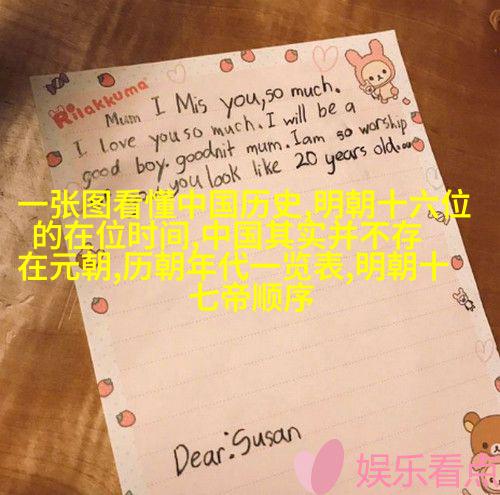 Rilakkuma
Mum I Mis you,so much.
I love you so much. I will be a
good boy. goodnit mum. I am so worship
you look like 20 years old.
一张图看懂中国历史,明朝十六位
的在位时间,中国其实并不存
在元朝,历朝年代一览表,明朝十
七帝顺序
Dear:Susan
娱乐看点